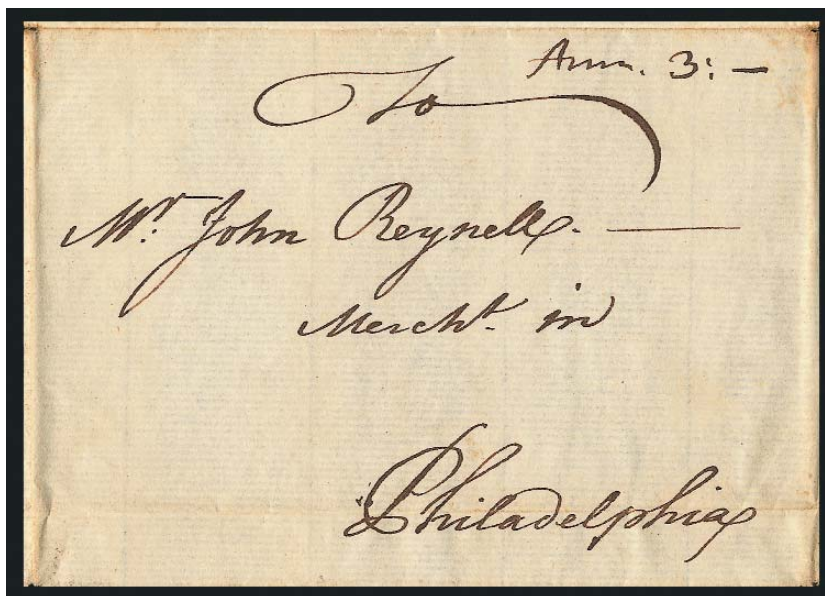 Ann. 3:—
To
Mr. John Reynell.—
Mercht. in
Philadelphia